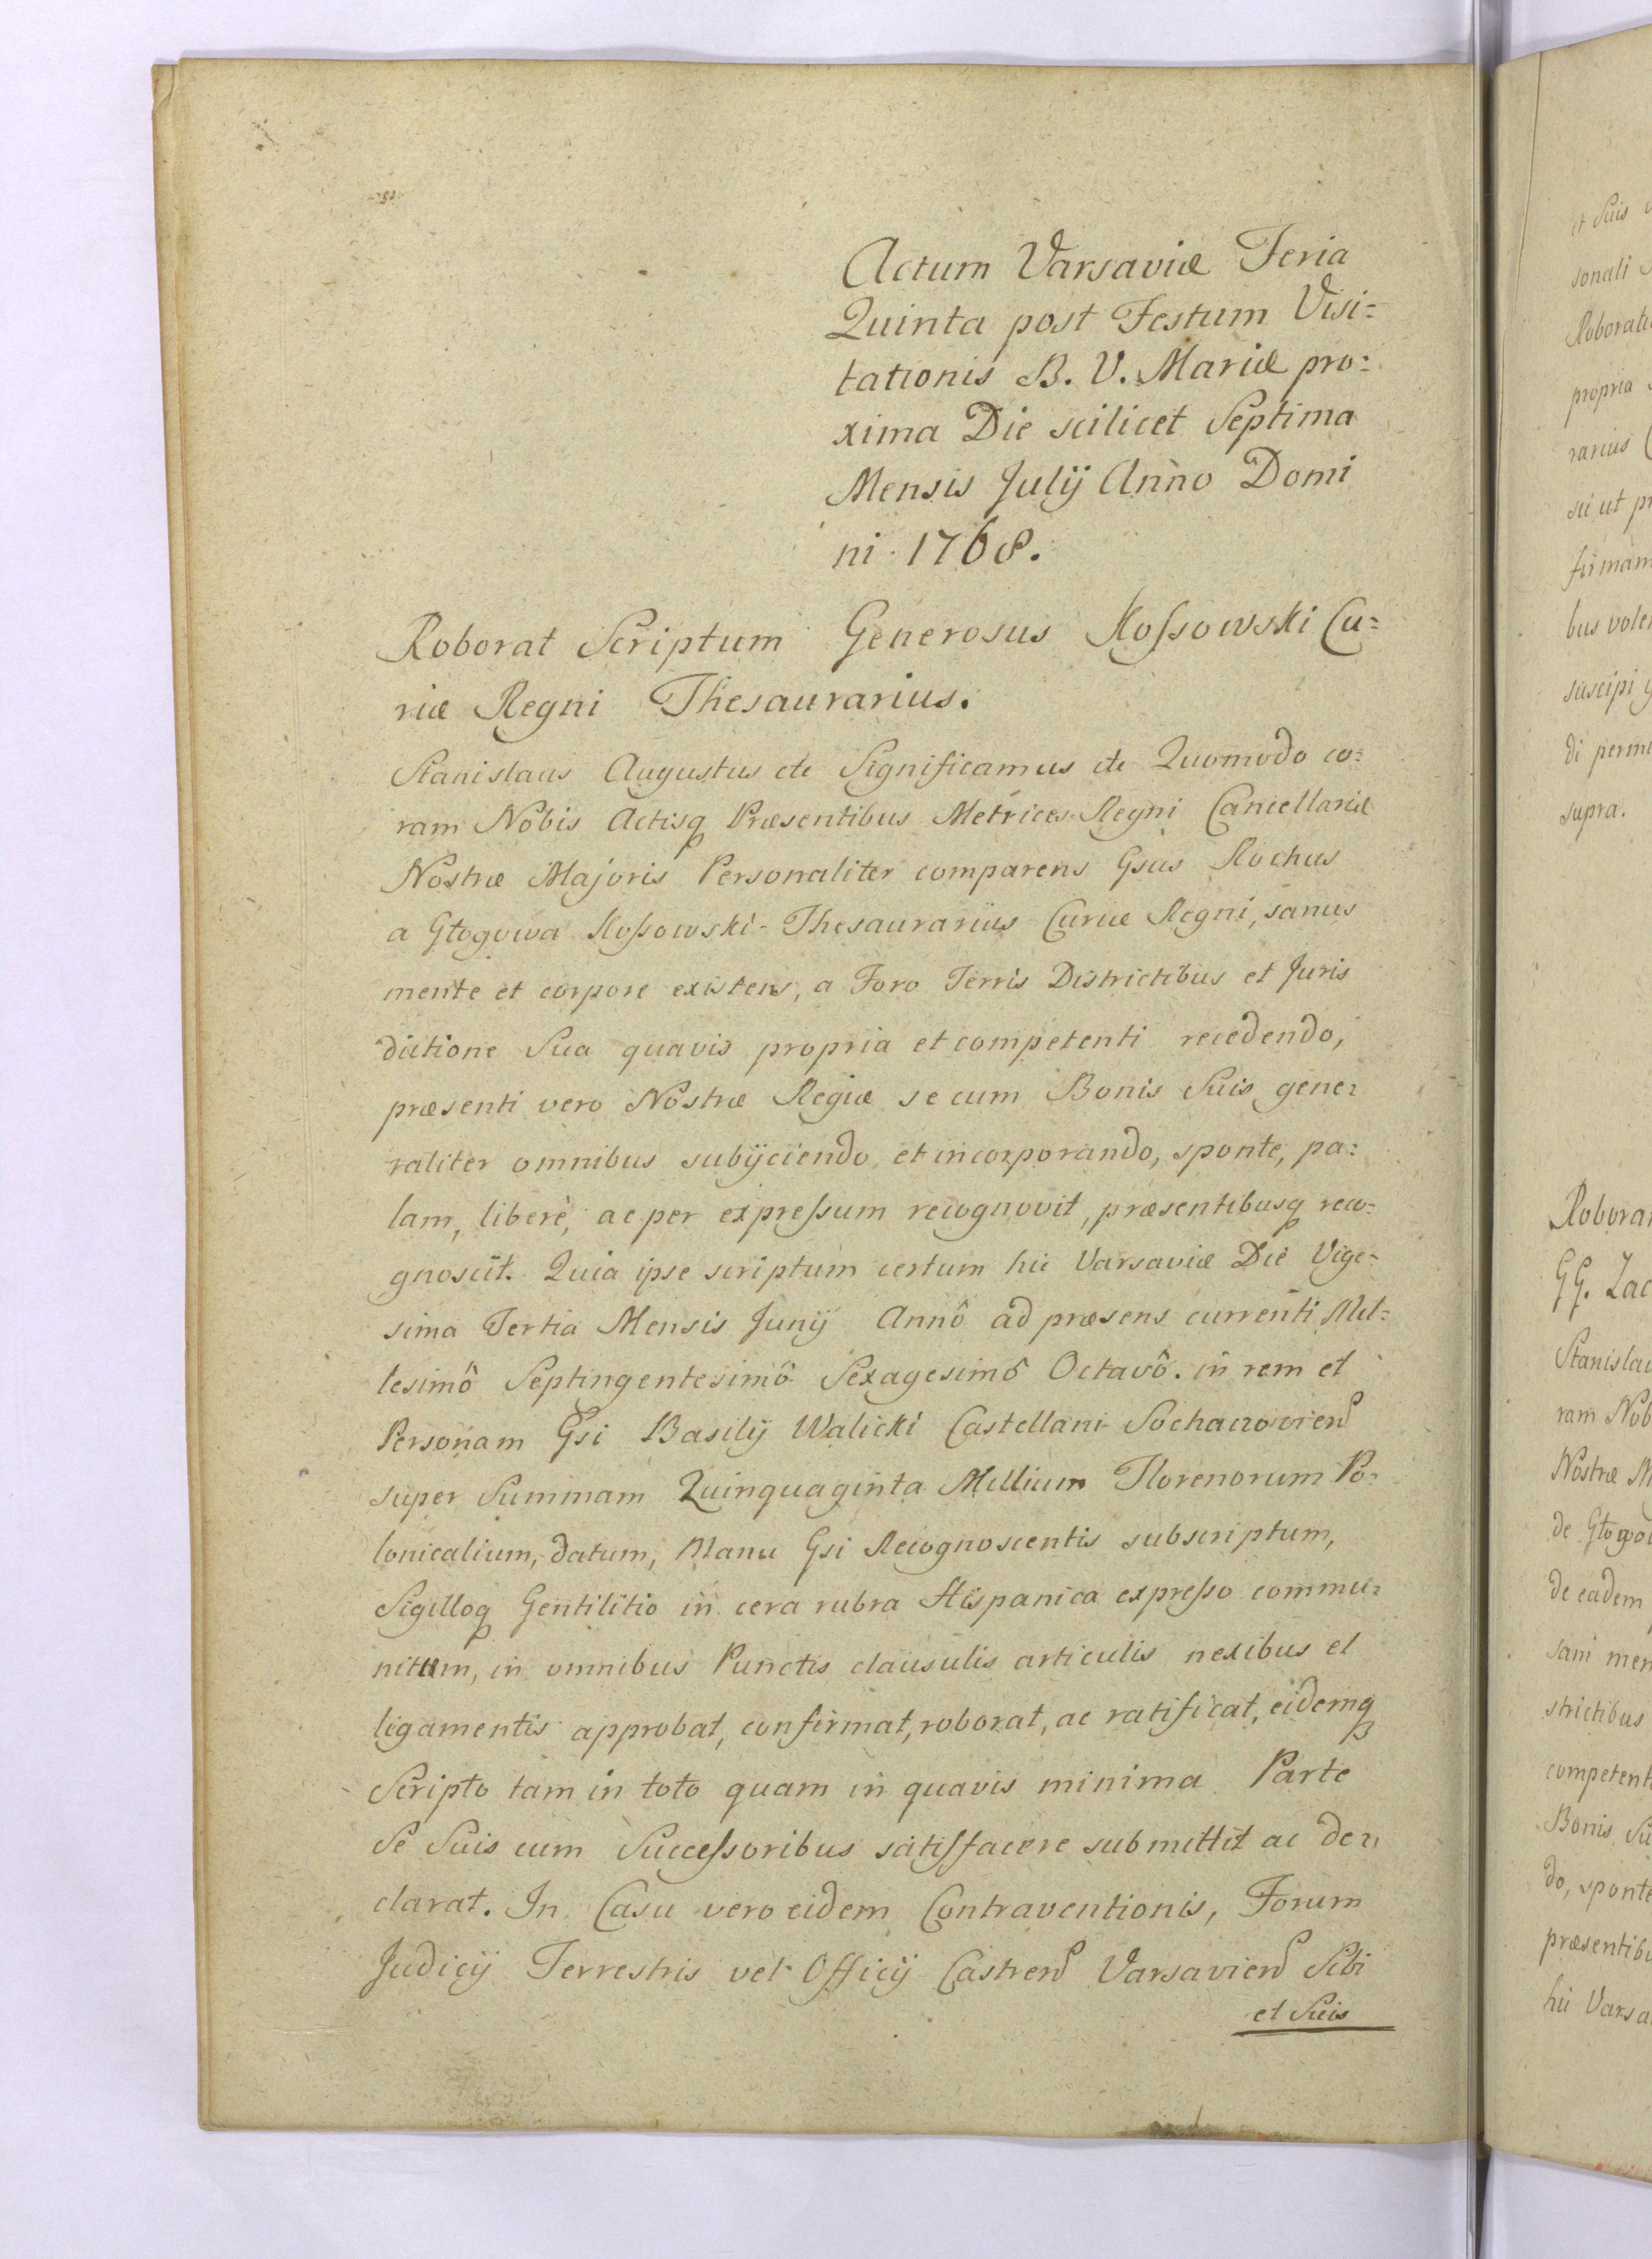 Actum Varsaviæ Feria
Quinta post Festum Visi=
tationis B. V. Mariæ pro=
xima Die scilicet Septima
Mensis Julij Anno Domi
ni 1768.
Roborat Scriptum Generosus Kossowski Cu=
riæ Regni Thesaurarius.
Stanislaus Augustus etc Significamus etc Quomodo co=
ram Nobis Actisq Præsentibus Metrices Regni Cancellariæ
Nostræ Majoris Personaliter comparens Gsus Rochus
a Głogowa Kossowski Thesaurarius Curiæ Regni, sanus
mente et corpore existens, a Foro Terris Districtibus et Juris
dictione Sua quavis propria et competenti recedendo,
præsenti vero Nostræ Regiæ se cum Bonis Suis gene=
raliter omnibus subijciendo et incorporando, sponte, pa=
lam, liberè, ac per expressum recognovit, præsentibusq reco=
gnoscit. Quia ipse scriptum certum hic Varsaviæ Die Vige=
sima Tertia Mensis Junij Annô ad præsens currenti Mil=
lesimô Septingentesimô Sexagesimô Octavô. in rem et
Personam Gsi Basilij Walicki Castellani Sochaczovien
super Summam Quinquaginta Millium Florenorum Po=
lonicalium, datum, Manu Gsi Recognoscentis subscriptum,
Sigilloq Gentilitio in cera rubra Hispanica expresso commu=
nitum, in omnibus Punctis clausulis articulis nexibus et
ligamentis approbat, confirmat, roborat, ac ratificat, eidemq
Scripto tam in toto quam in quavis minima Parte
Se Suis cum Successoribus satisfacere submittit ac de=
clarat. In Casu vero eidem Contraventionis, Forum
Judicij Terrestris vel Officij Castren Varsavien Sibi
et Suis
et Suis
sonali
Roborati
propria
rarius
sii ut pr
firmam
bus volen
suscipi
di permi
supra.
Roboran
GG. Zac
Stanislau
ram Nob
Nostræ M
de Głogow
de eadem
sani men
strictibus
competent
Bonis Su
do, sponte
præsentibu
hic Varsa